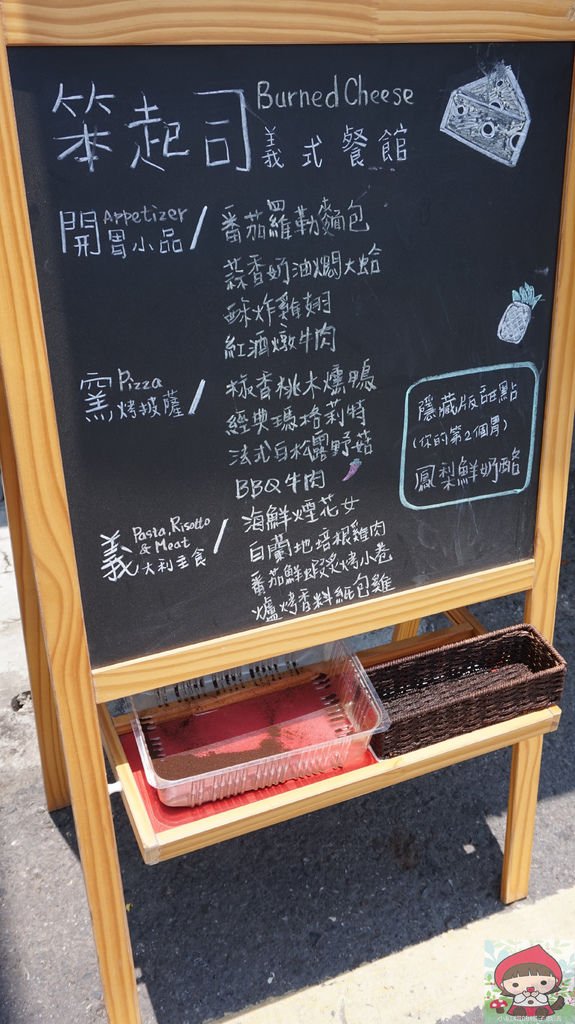 笨起司 Burned Cheese
義式餐館
開胃小品 Appetizer /
番茄羅勒麵包
蒜香奶油燜大蛤
酥炸雞翅
紅酒燉牛肉
窯烤披薩 Pizza /
椒香桃木燻鴨
經典瑪格莉特
法式白松露野菇
BBQ牛肉
義大利主食 Pasta Risotto & Meat /
海鮮煙花女
白蘭地培根雞肉
番茄鮮蝦漿烤小卷
爐烤香料紙包雞
隱藏版甜點
(你的第2個胃)
鳳梨鮮奶酪